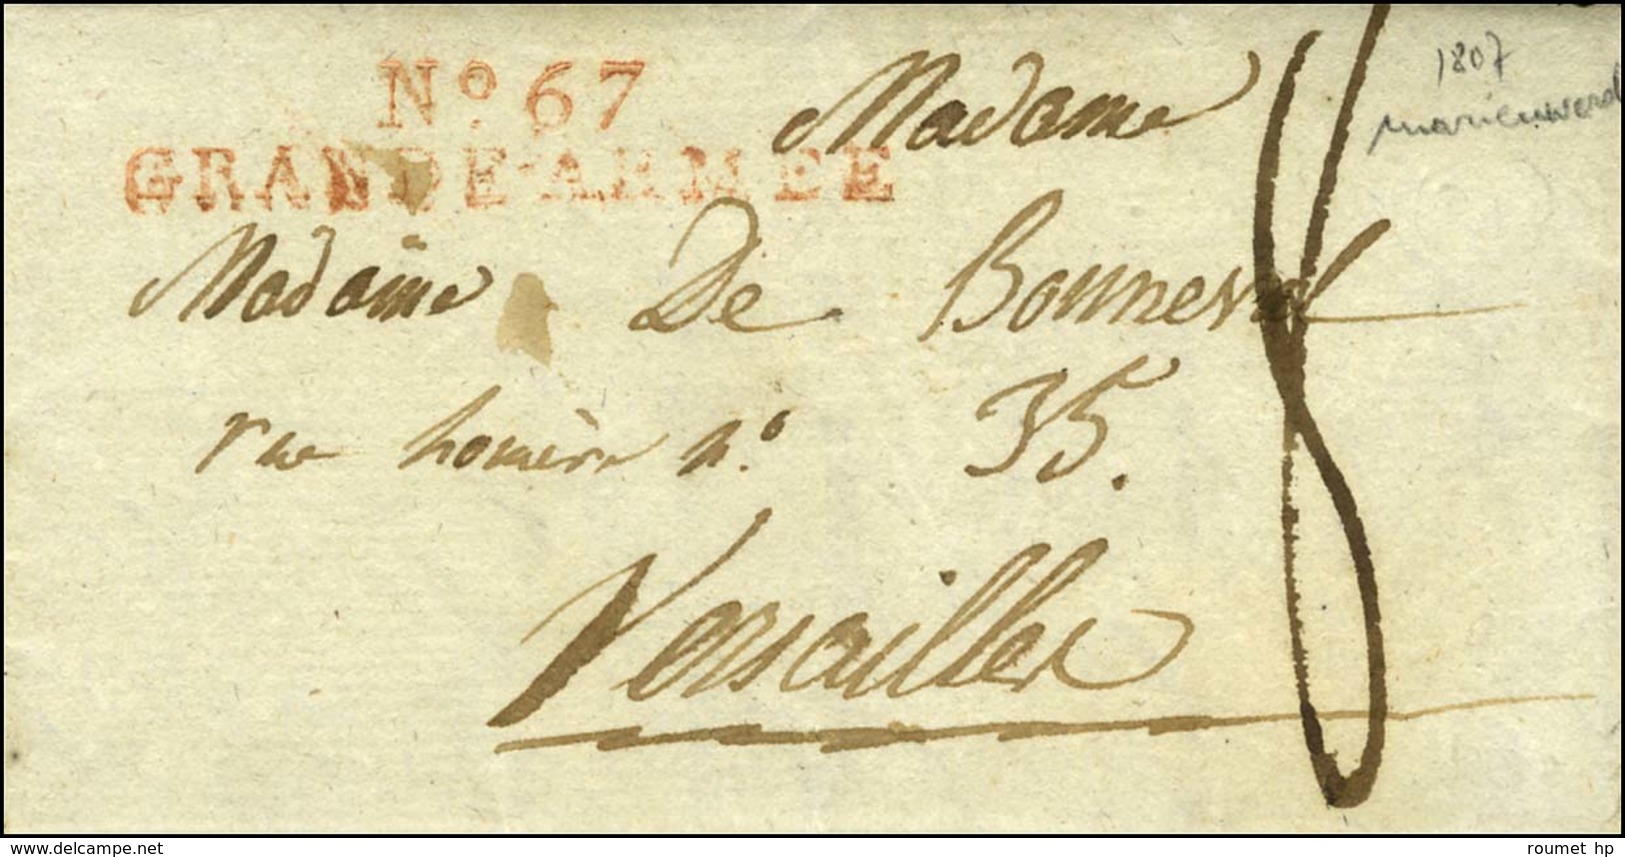 No. 67
GRANDE-ARMÉE
Madame
1807
marienwerd
Madame De Bonneval
rue homère n.o 35.
Versailles
8
www.delcampe.net
roumet hp